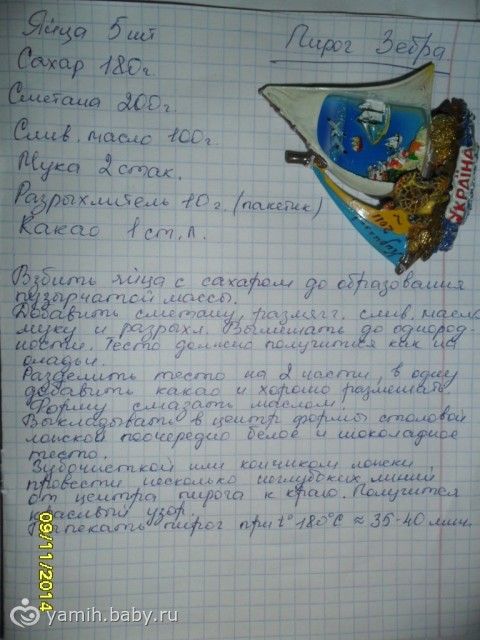 Яйца 5 шт
Пирог Зебра.
Сахар 180г.
Сметана 200г.
Слив. масло 100г.
Мука 2 стак.
Разрыхлитель 10 г. (пакетик)
Какао 1 ст. л.
УКРАЇНА
Взбить яйца с сахаром до образования
пузырчатой массы.
Добавить сметану, размягг. слив. масло
муку и разрыхл. Вымешать до однород-
ности. Тесто должно получится как на
оладьи.
Разделить тесто на 2 части, в одну
добавить какао и хорошо размешать
Форму смазать маслом.
Выкладывать в центр формы столовой
ложкой поочередно белое и шоколадное
тесто.
Зубочисткой или кончиком ложки
провести несколько неглубоких линий
от центра пирога к краю. Получится
красивый узор.
Выпекать пирог при t° 180°С ≈ 35-40 мин.
09/11/2014
yamih.baby.ru